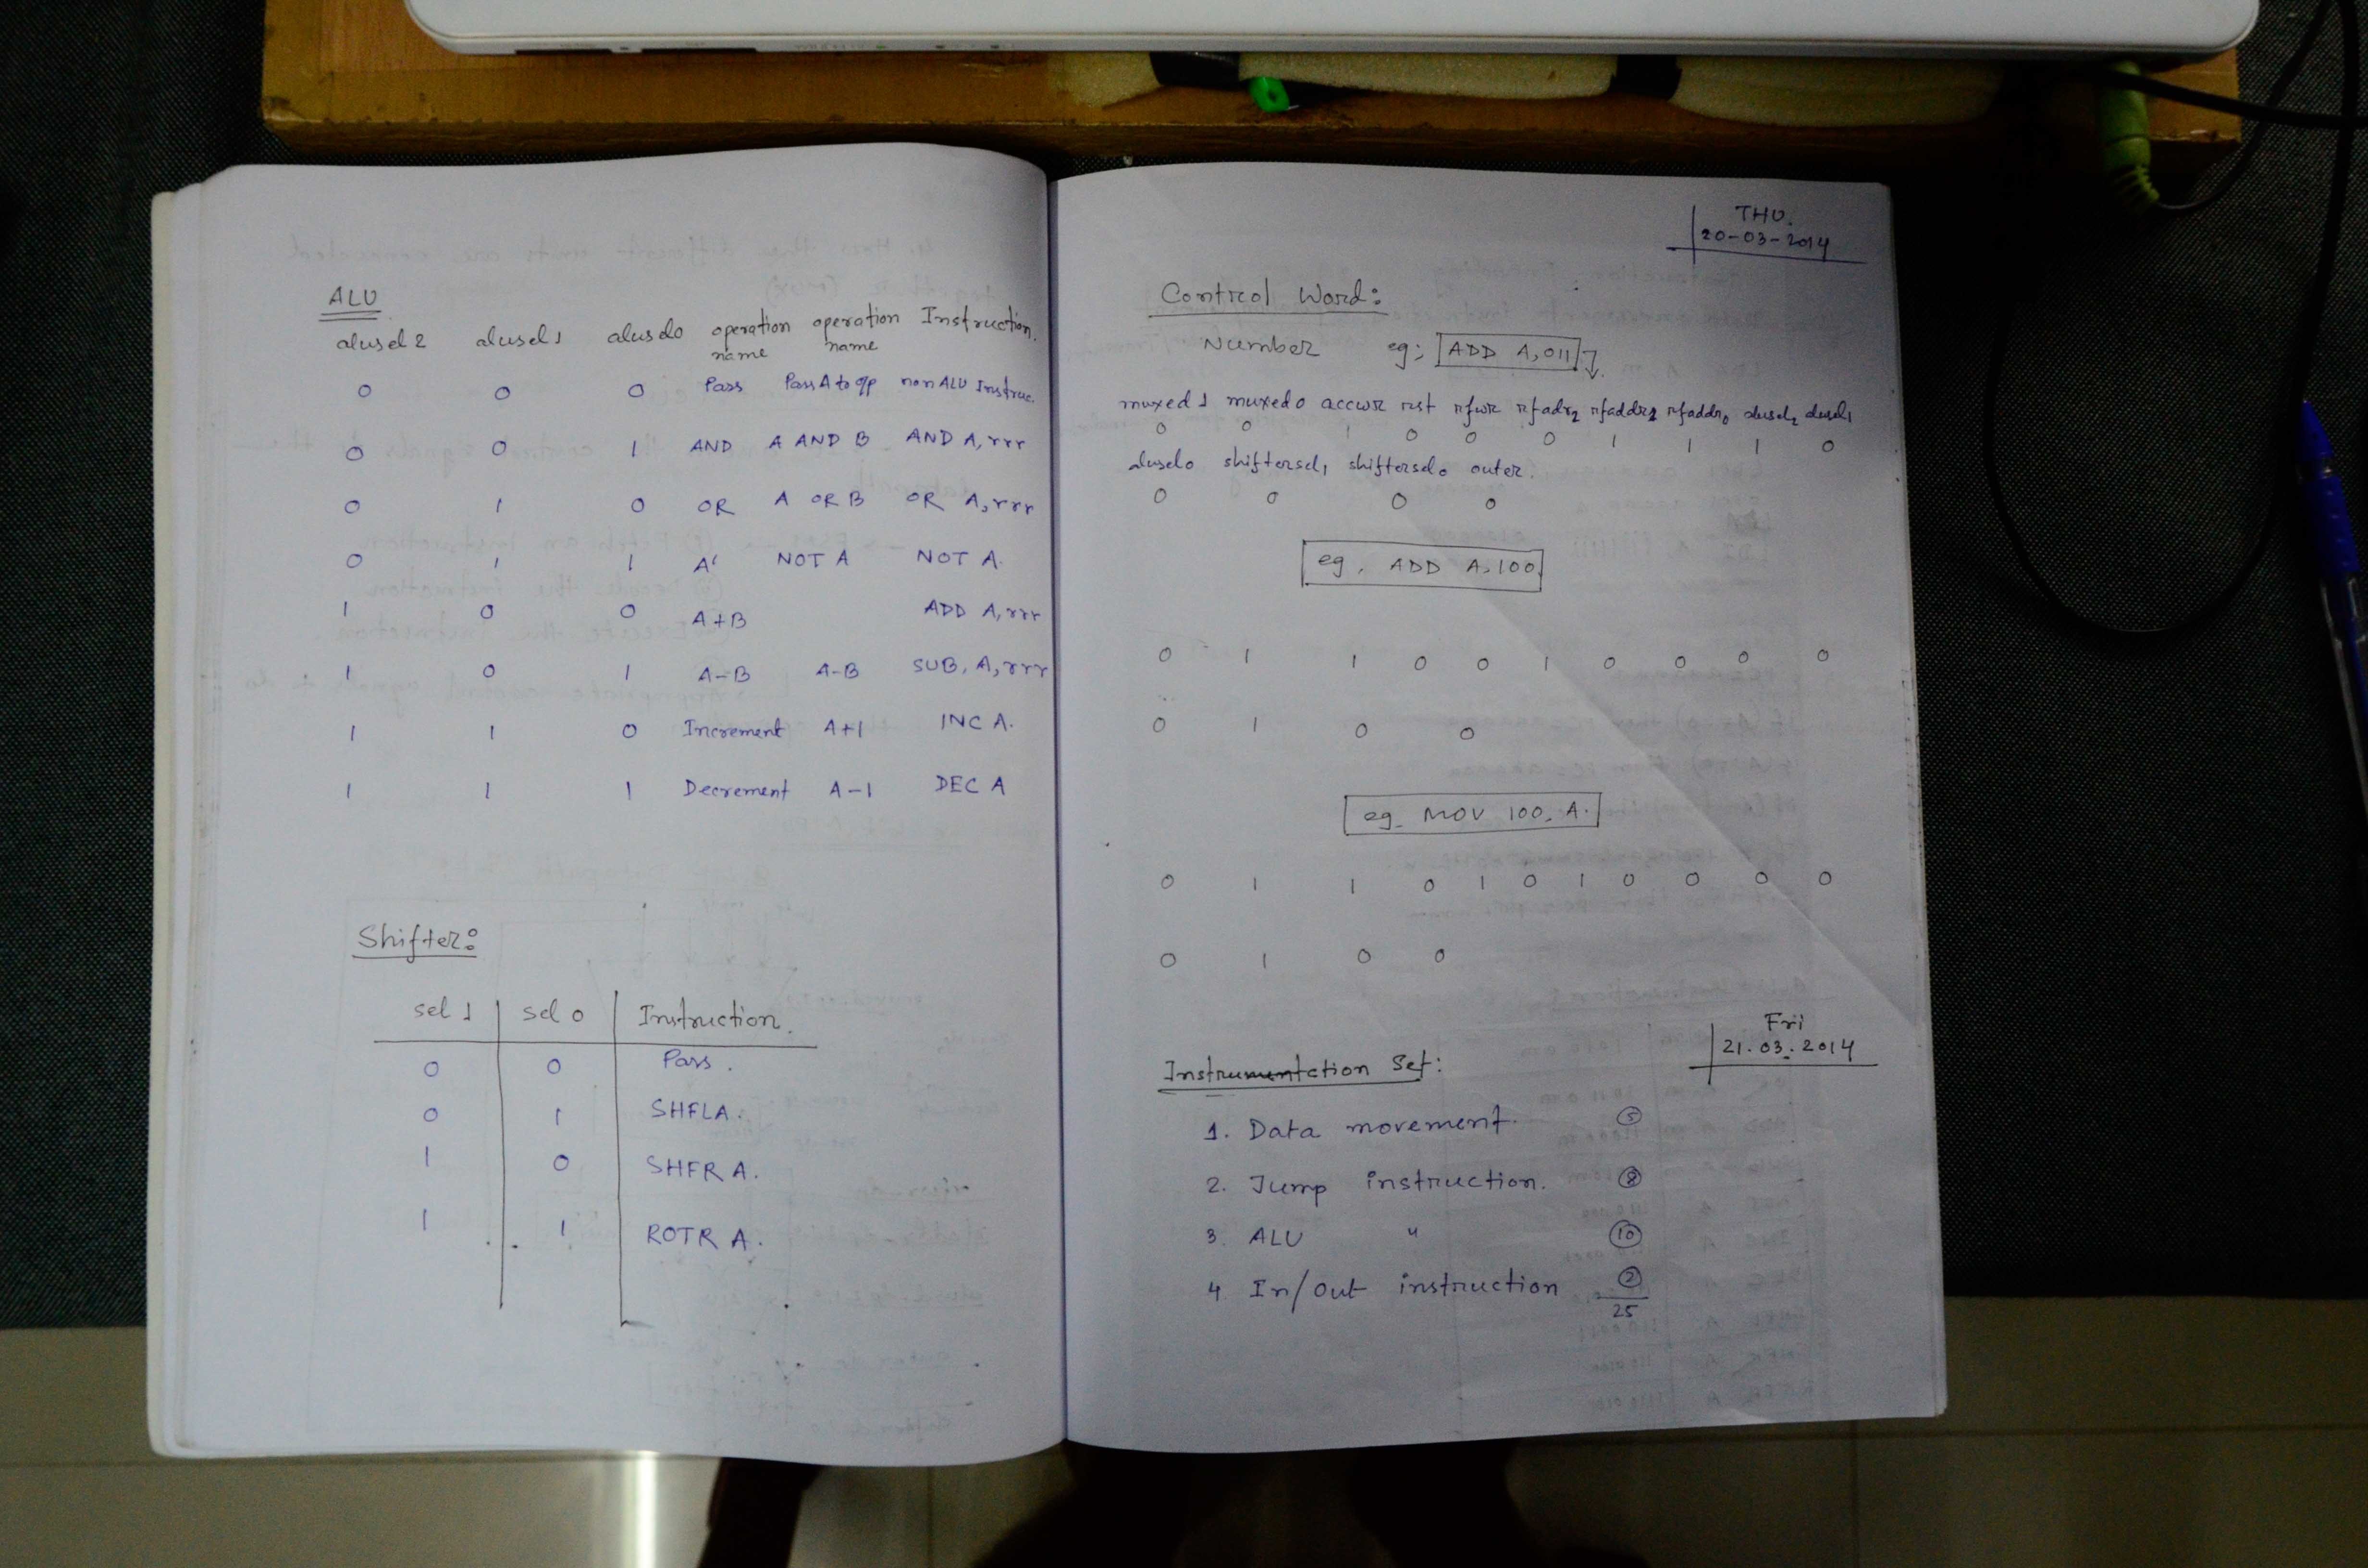 ALU
alusel2 alusel1 alusel0 operation name operation name Instruction.
0 0 0 Pass Pass A to o/p non ALU Instruc.
0 0 1 AND A AND B AND A,rrr
0 1 0 OR A OR B OR A,rrr
0 1 1 A' NOT A NOT A.
1 0 0 A+B ADD A,rrr
1 0 1 A-B A-B SUB, A,rrr
1 1 0 Increment A+1 INC A.
1 1 1 Decrement A-1 DEC A
Shifter:
sel 1 sel 0 Instruction.
0 0 Pass.
0 1 SHFLA.
1 0 SHFR A.
1 1 ROTR A.
THU.
20-03-2014
Control Word:
Number eg; ADD A,011
muxed1 muxed0 accwr rst rfwr rfadr2 rfaddr1 rfaddr0 alusel2 alusel1
0 0 1 0 0 0 1 1 1 0
alusel0 shiftersel1 shiftersel0 outer.
0 0 0 0
eg. ADD A,100
0 1 1 0 0 1 0 0 0 0
0 1 0 0
eg. MOV 100, A.
0 1 1 0 1 0 1 0 0 0 0
0 1 0 0
Fri
21.03.2014
Instruction Set:
1. Data movement. 5
2. Jump instruction. 8
3. ALU " 10
4. In/Out instruction 2
25